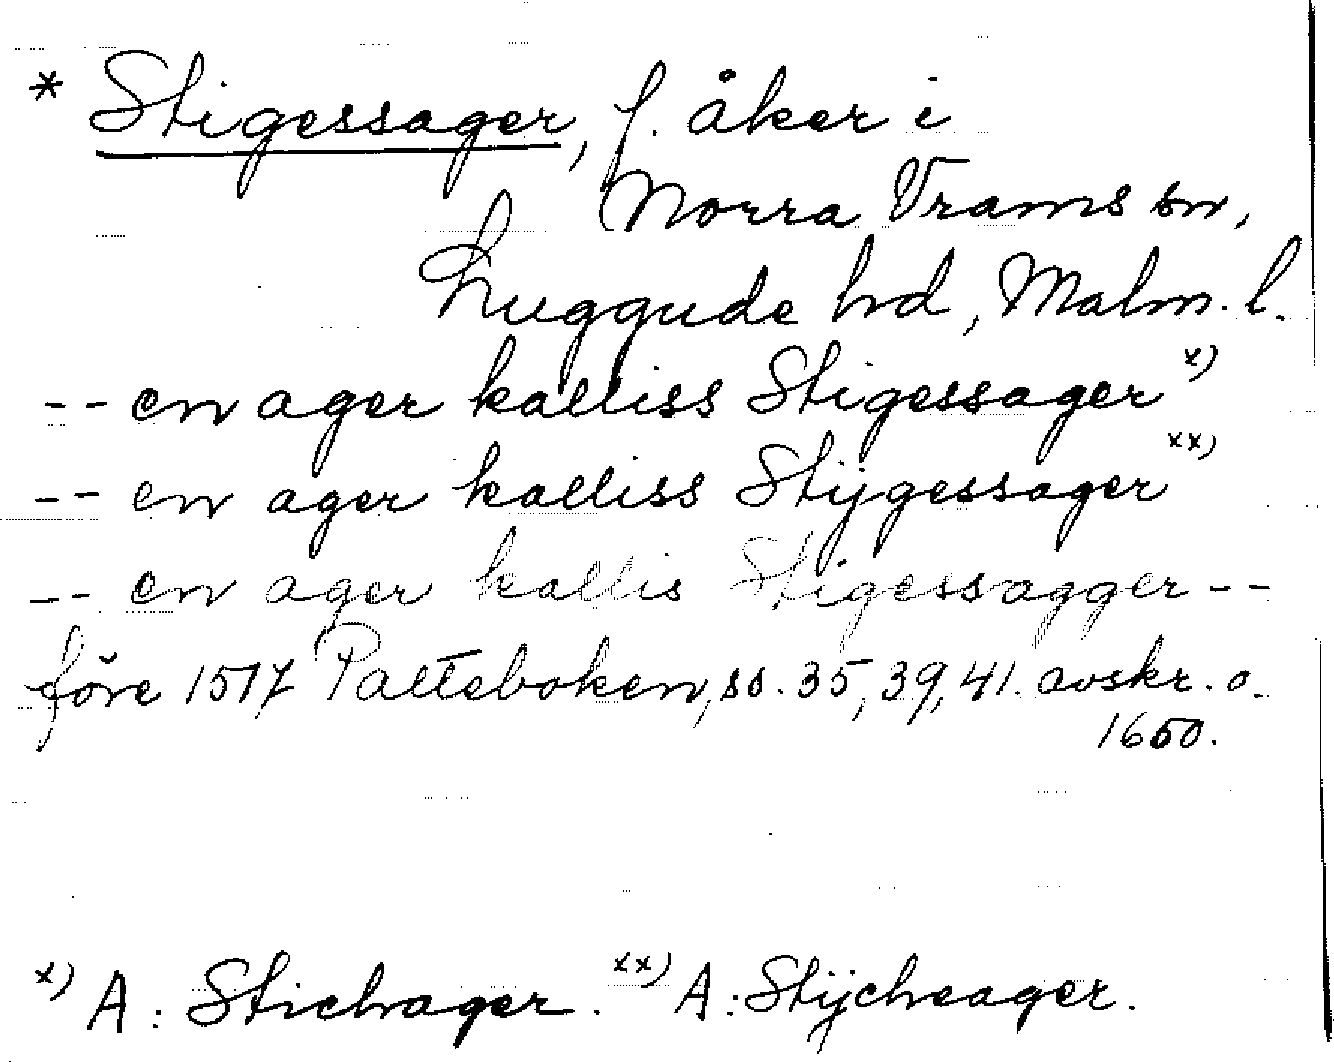 * Stigessager, f. åker i
Norra Vrams sn,
Luggude hd, Malm. l.
-- en ager kalliss Stigessager x)
-- en ager kalliss Stijgessager xx)
-- en ager kallis Stigessagger --
före 1517 Palteboken, ss. 35, 39, 41. avskr. o.
1650.
x) A: Stichager. xx) A: Stijcheager.